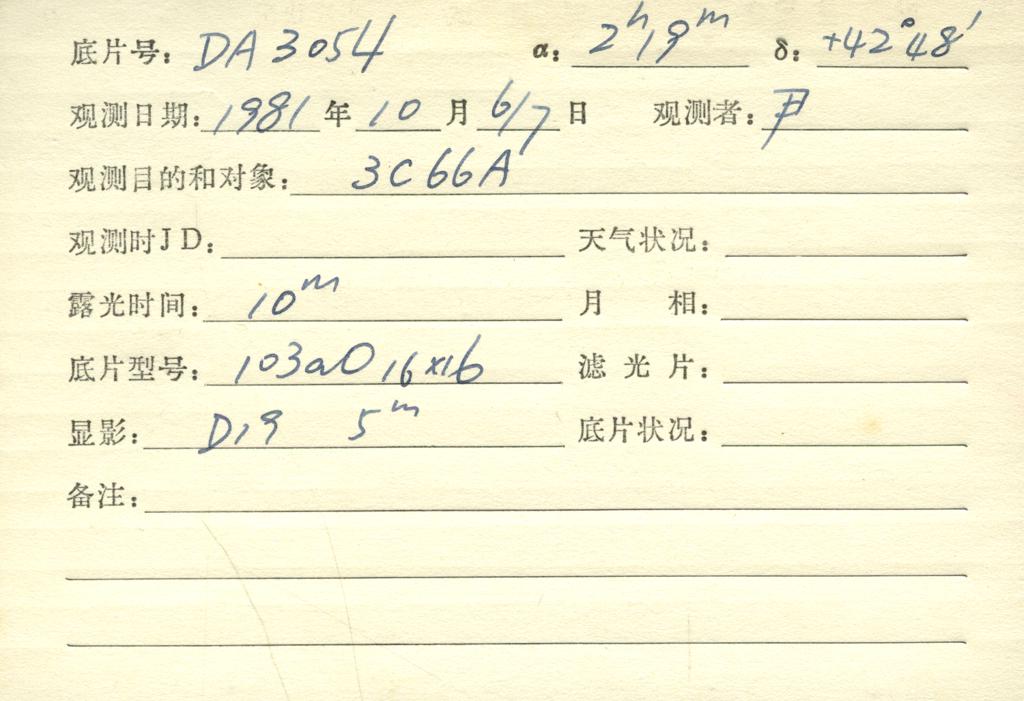 底片号: DA 3054 α: 2ʰ19ᵐ δ: +42°48′
观测日期: 1981 年 10 月 6/7 日 观测者: 尹
观测目的和对象: 3C66A
观测时JD: 天气状况:
露光时间: 10ᵐ 月 相:
底片型号: 103aO 16×16 滤光片:
显影: D19 5ᵐ 底片状况:
备注: